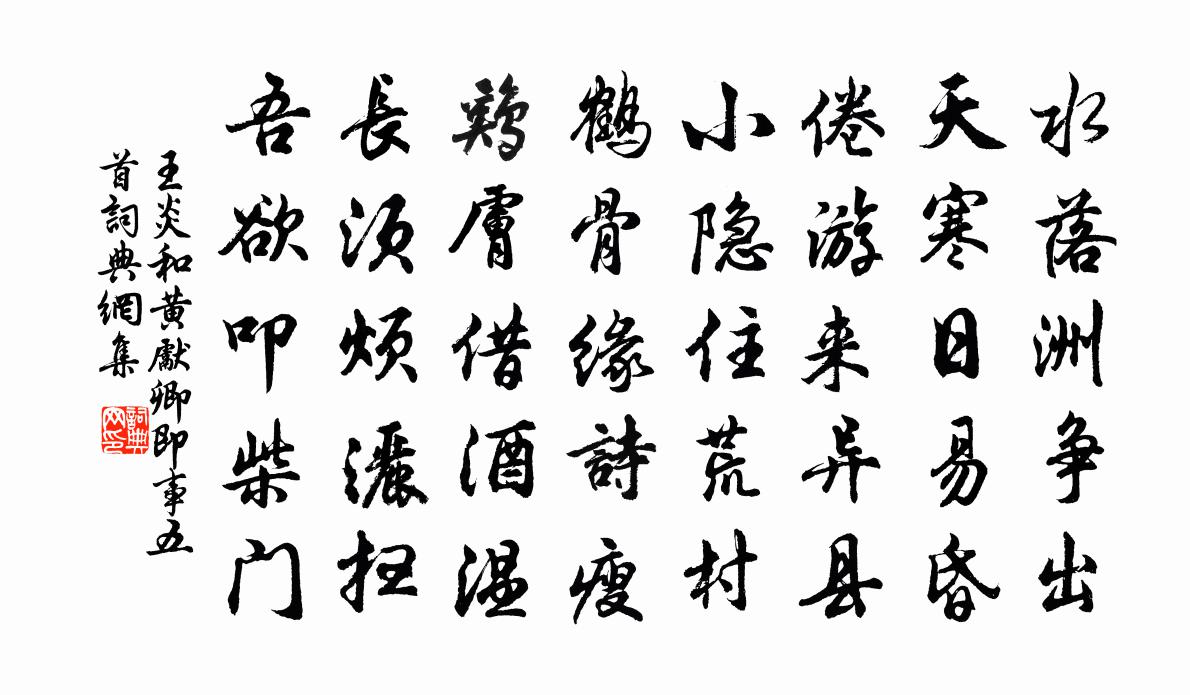 水落洲争出
天寒日易昏
倦游来异县
小隐住荒村
鹤骨缘詩瘦
鷄膚借酒温
長须烦灑扫
吾欲叩柴门
王炎和黄獻卿即事五
首詞典網集
詞典
网印